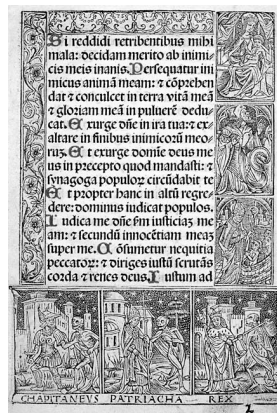 Si reddidi retribentibus mihi
mala: decidam merito ab inimi
cis meis inanis. Persequatur ini
micus animā meam: ⁊ cōprehen
dat ⁊ conculcet in terra vitā meā
⁊ gloriam meā in pulverē dedu
cat. Exurge dn̄e in ira tua: ⁊ ex
altare in finibus inimicoꝝ meo
ruꝫ. Et exurge domīe deus me
us in p̄cepto quod mandasti: ⁊
synagoga populoꝝ circūdabit te
Et ꝓpter hanc in altū regre
dere: dominus iudicat populos.
Iudica me dn̄e ẜm iusticiaꝫ me
am: ⁊ secundū innocētiam meaꝫ
super me. Cōsumetur nequitia
peccatoꝝ: ⁊ diriges iustū scrutās
corda ⁊ renes deus. Iustum ad
CHAPITANEVS PATRIACHA REX
2